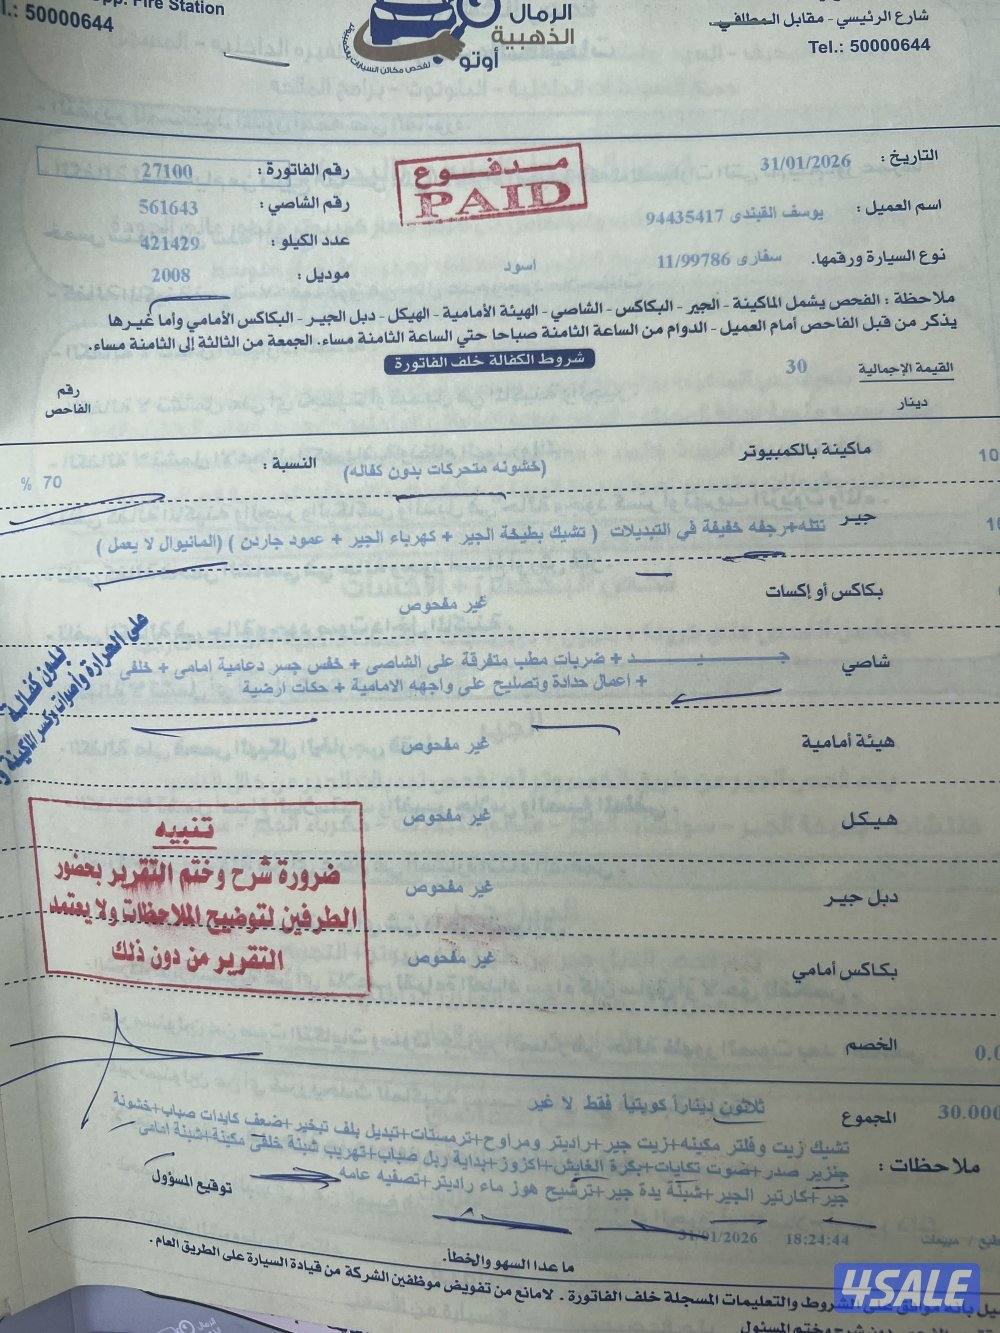 pp. Fire Station
l.: 50000644
الرمال
الذهبية
أوتو
لفحص مكائن السيارات بالكمبيوتر
شارع الرئيسي - مقابل المطافي
Tel.: 50000644
التاريخ : 31/01/2026
مدفوع
PAID
رقم الفاتورة : 27100
اسم العميل : يوسف القبندى 94435417
رقم الشاصي : 561643
عدد الكيلو : 421429
نوع السيارة ورقمها. سفارى 11/99786 اسود
موديل : 2008
ملاحظة : الفحص يشمل الماكينة - الجير - البكاكس - الشاصي - الهيئة الأمامية - الهيكل - دبل الجير - البكاكس الأمامي وأما غيرها
يذكر من قبل الفاحص أمام العميل - الدوام من الساعة الثامنة صباحا حتي الساعة الثامنة مساء. الجمعة من الثالثة إلى الثامنة مساء.
شروط الكفالة خلف الفاتورة
القيمة الإجمالية 30
دينار
رقم
الفاحص
ماكينة بالكمبيوتر (خشونه متحركات بدون كفاله) النسبة : 70 %
10
جير نتله+رجفه خفيفة في التبديلات ( تشبك بطيخة الجير + كهرباء الجير + عمود جاردن ) (المانيوال لا يعمل )
بكاكس أو إكسات غير مفحوص
شاصي جـــيـــد + ضربات مطب متفرقة على الشاصى + خفس جسر دعامية امامى + خلفى
+ اعمال حدادة وتصليح على واجهه الامامية + حكات ارضية
بدون كفالة
على الحرارة وأصوات وكسر الماكينة
هيئة أمامية غير مفحوص
هيكل غير مفحوص
دبل جير غير مفحوص
بكاكس أمامي غير مفحوص
تنبيه
ضرورة شرح وختم التقرير بحضور
الطرفين لتوضيح الملاحظات ولا يعتمد
التقرير من دون ذلك
الخصم 0.0
المجموع ثلاثون ديناراً كويتياً فقط لا غير 30.000
ملاحظات :
تشبك زيت وفلتر مكينه+زيت جير+راديتر ومراوح+ترمستات+تبديل بلف تبخير+ضعف كايدات صباب+خشونة
جنزير صدر+صوت تكايات+بكرة القايش+اكزوز+بداية ربل صباب+تهريب شبنة خلفى مكينة+شبنة امامى
جير+كارتير الجير+شبلة يدة جير+ترشيح هوز ماء راديتر+تصفيه عامه
توقيع المسؤول
مبيعات 18:24:44 31/01/2026
ما عدا السهو والخطأ.
الشروط والتعليمات المسجلة خلف الفاتورة . لامانع من تفويض موظفين الشركة من قيادة السيارة على الطريق العام .
وختم المسئول
4SALE